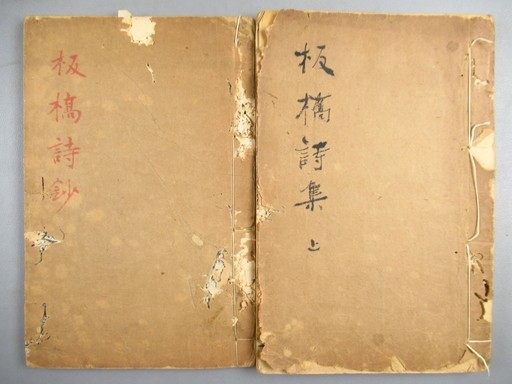 板橋詩集 上
板橋詩鈔